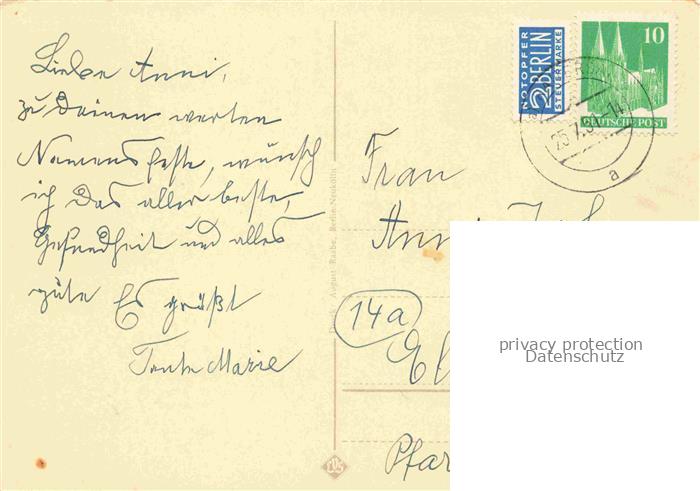 Liebe Anni,
zu Deinen werten
Namensfeste, wünsch
ich das aller beste,
Gesundheit und alles
gute Es grüßt
Tante Marie
NOTOPFER
2 BERLIN
STEUERMARKE
10
DEUTSCHE POST
25.7.5
a
Frau
14a
August Raabe, Berlin-Neukölln
privacy protection
Datenschutz